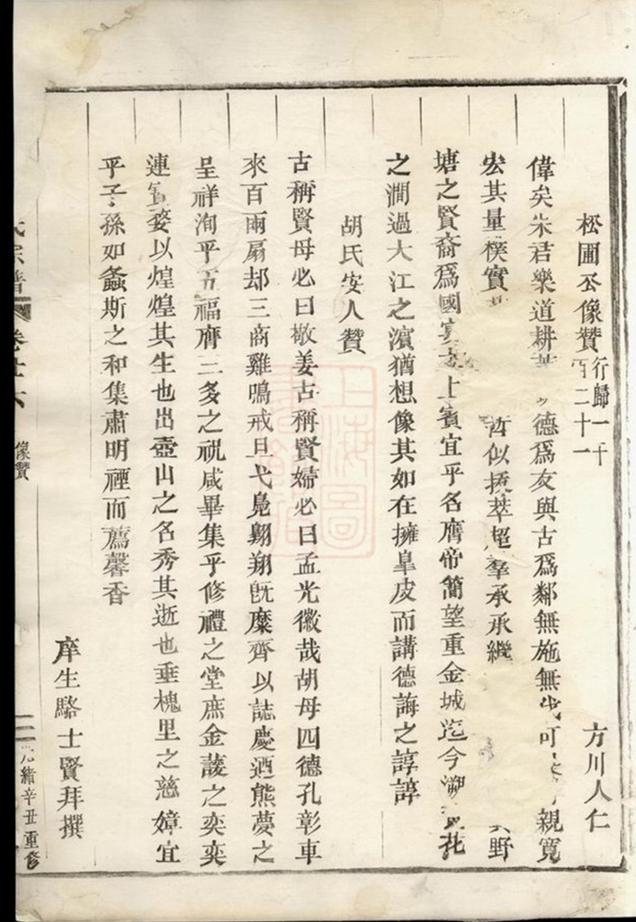 松圃公像贊行歸一千百二十一
方川人仁
偉矣朱君樂道耕 德為友與古為鄰無施無 可 親寬
宏其量樸實 哲似 拔萃超羣承承繼 野
塘之賢裔為國 上賓宜乎名膺帝簡望重金城迄今溯 花
之澗過大江之濱猶想像其如在擁皐皮而講德誨之諄諄
胡氏安人贊
古稱賢母必曰敬姜古稱賢婦必曰孟光徽哉胡母四德孔彰車
來百兩扇却三商雞鳴戒旦弋鳧翺翔旣糜齊以誌慶迺熊夢之
呈祥洵乎五福膺三多之祝咸畢集乎修禮之堂庶金護之奕奕
連寶婺以煌煌其生也出壺山之名秀其逝也垂槐里之慈嫜宜
乎子孫如螽斯之和集肅明禋而薦馨香
庠生駱士賢拜撰
氏宗譜 卷廿六 像贊 二 光緒辛丑重修